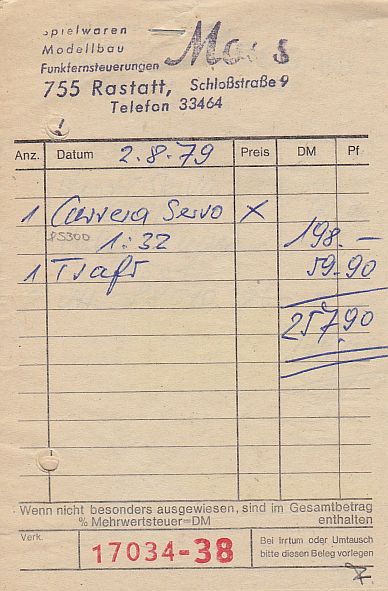 Spielwaren
Modellbau
Funkfernsteuerungen
755 Rastatt, Schloßstraße 9
Telefon 33464
Anz. Datum 2.8.79 Preis DM Pf
1 Carrera Servo X
PS300 1:32 198.-
1 Trafo 59.90
257,90
Wenn nicht besonders ausgewiesen, sind im Gesamtbetrag
% Mehrwertsteuer=DM enthalten
Verk. 17034-38 Bei Irrtum oder Umtausch
bitte diesen Beleg vorlegen